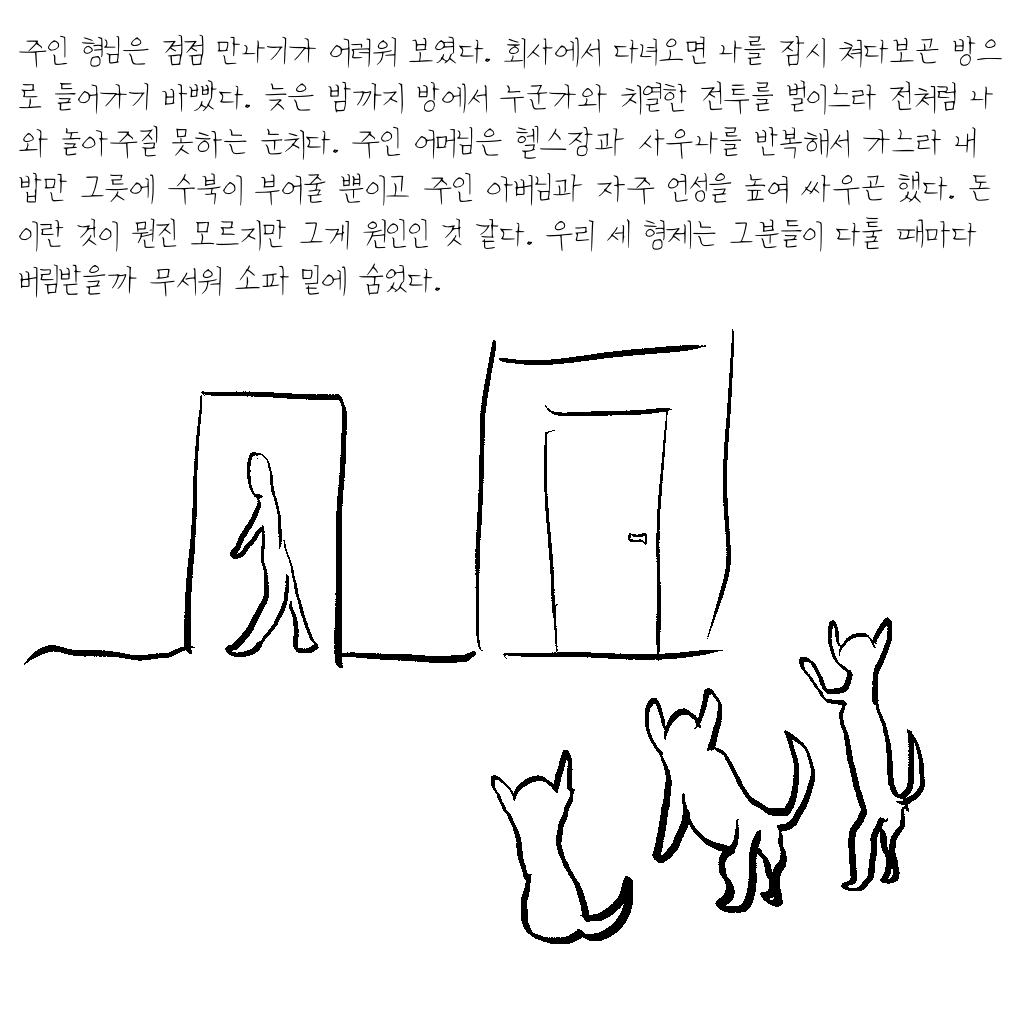 주인 형님은 점점 만나기가 어려워 보였다. 회사에서 다녀오면 나를 잠시 쳐다보곤 방으
로 들어가기 바빴다. 늦은 밤까지 방에서 누군가와 치열한 전투를 벌이느라 전처럼 나
와 놀아주질 못하는 눈치다. 주인 어머님은 헬스장과 사우나를 반복해서 가느라 내
밥만 그릇에 수북이 부어줄 뿐이고 주인 아버님과 자주 언성을 높여 싸우곤 했다. 돈
이란 것이 뭔진 모르지만 그게 원인인 것 같다. 우리 세 형제는 그분들이 다툴 때마다
버림받을까 무서워 소파 밑에 숨었다.